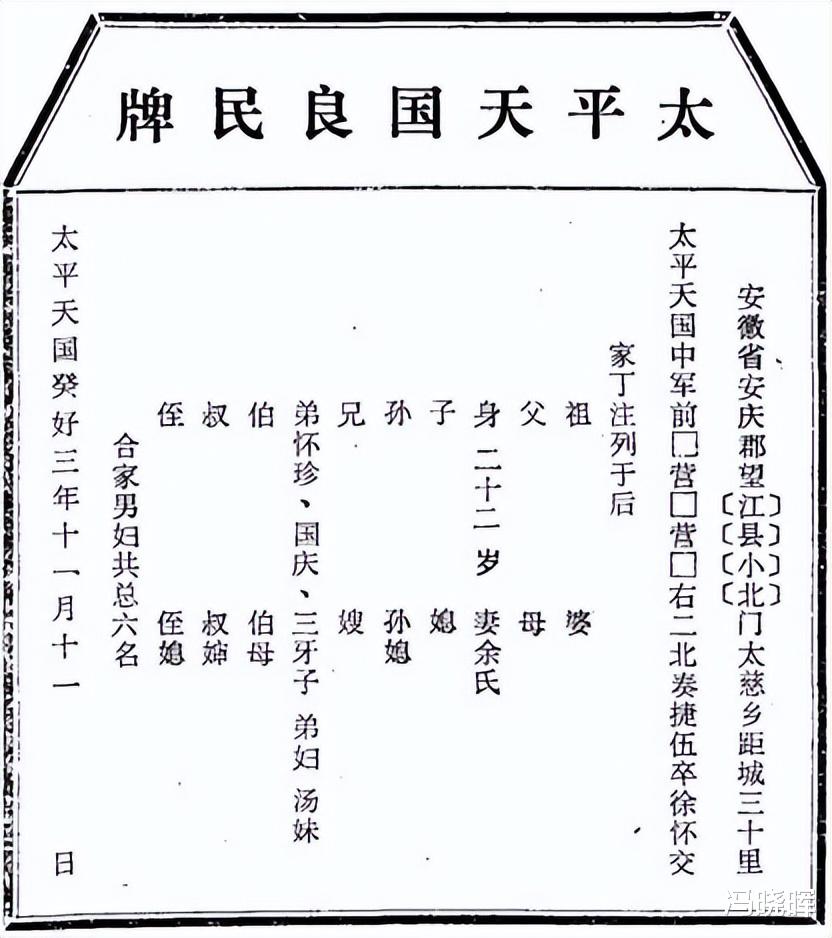 太平天国良民牌
安徽省安庆郡望〔江〕〔县〕〔小〕〔北〕门太慈乡距城三十里
太平天国中军前□营□营□右二北奏捷伍卒徐怀交
家丁注列于后
祖 婆
父 母
身 二十二岁 妻余氏
子 媳
孙 孙媳
兄 嫂
弟怀珍、国庆、三牙子 弟妇 汤妹
伯 伯母
叔 叔婶
侄 侄媳
合家男妇共总六名
太平天国癸好三年十一月十一 日
冯晓晖